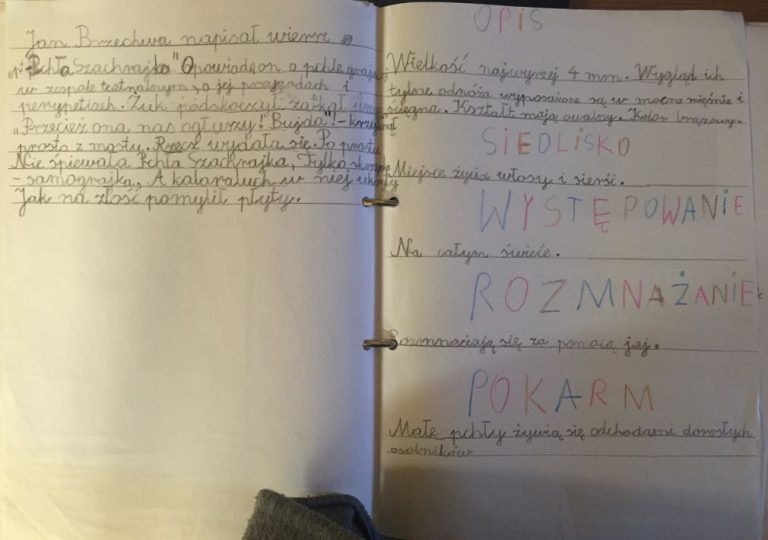 Jan Brzechwa napisał wiersz o
"Pchła Szachrajka" Opowiada on o pchle grającej
w zespole teatralnym, o jej przygodach i
perypetiach. Żuk podskoczył zatkał
"Przecież ona nas ogłuszy!" "Bujda"! - krzyknął
prosto z mostu. Rzecz wydała się. Po prostu
Nie śpiewała Pchła Szachrajka, Tylko
- samograjka, A kataraluch w niej ukryty
Jak na złość pomylił płyty.
OPIS
Wielkość najwyrzej 4 mm. Wygląd ich
tylne odnóża wyposarzone są w mocne mięśnie i
ścięgna. Kształt mają owalny. Kolor brązowy.
SIEDLISKO
Miejsce życia włosy i sierść.
WYSTĘPOWANIE
Na całym świecie.
ROZMNAŻANIE
Rozmnażają się za pomocą jaj.
POKARM
Małe pchły żywią się odchodami dorosłych
osobników